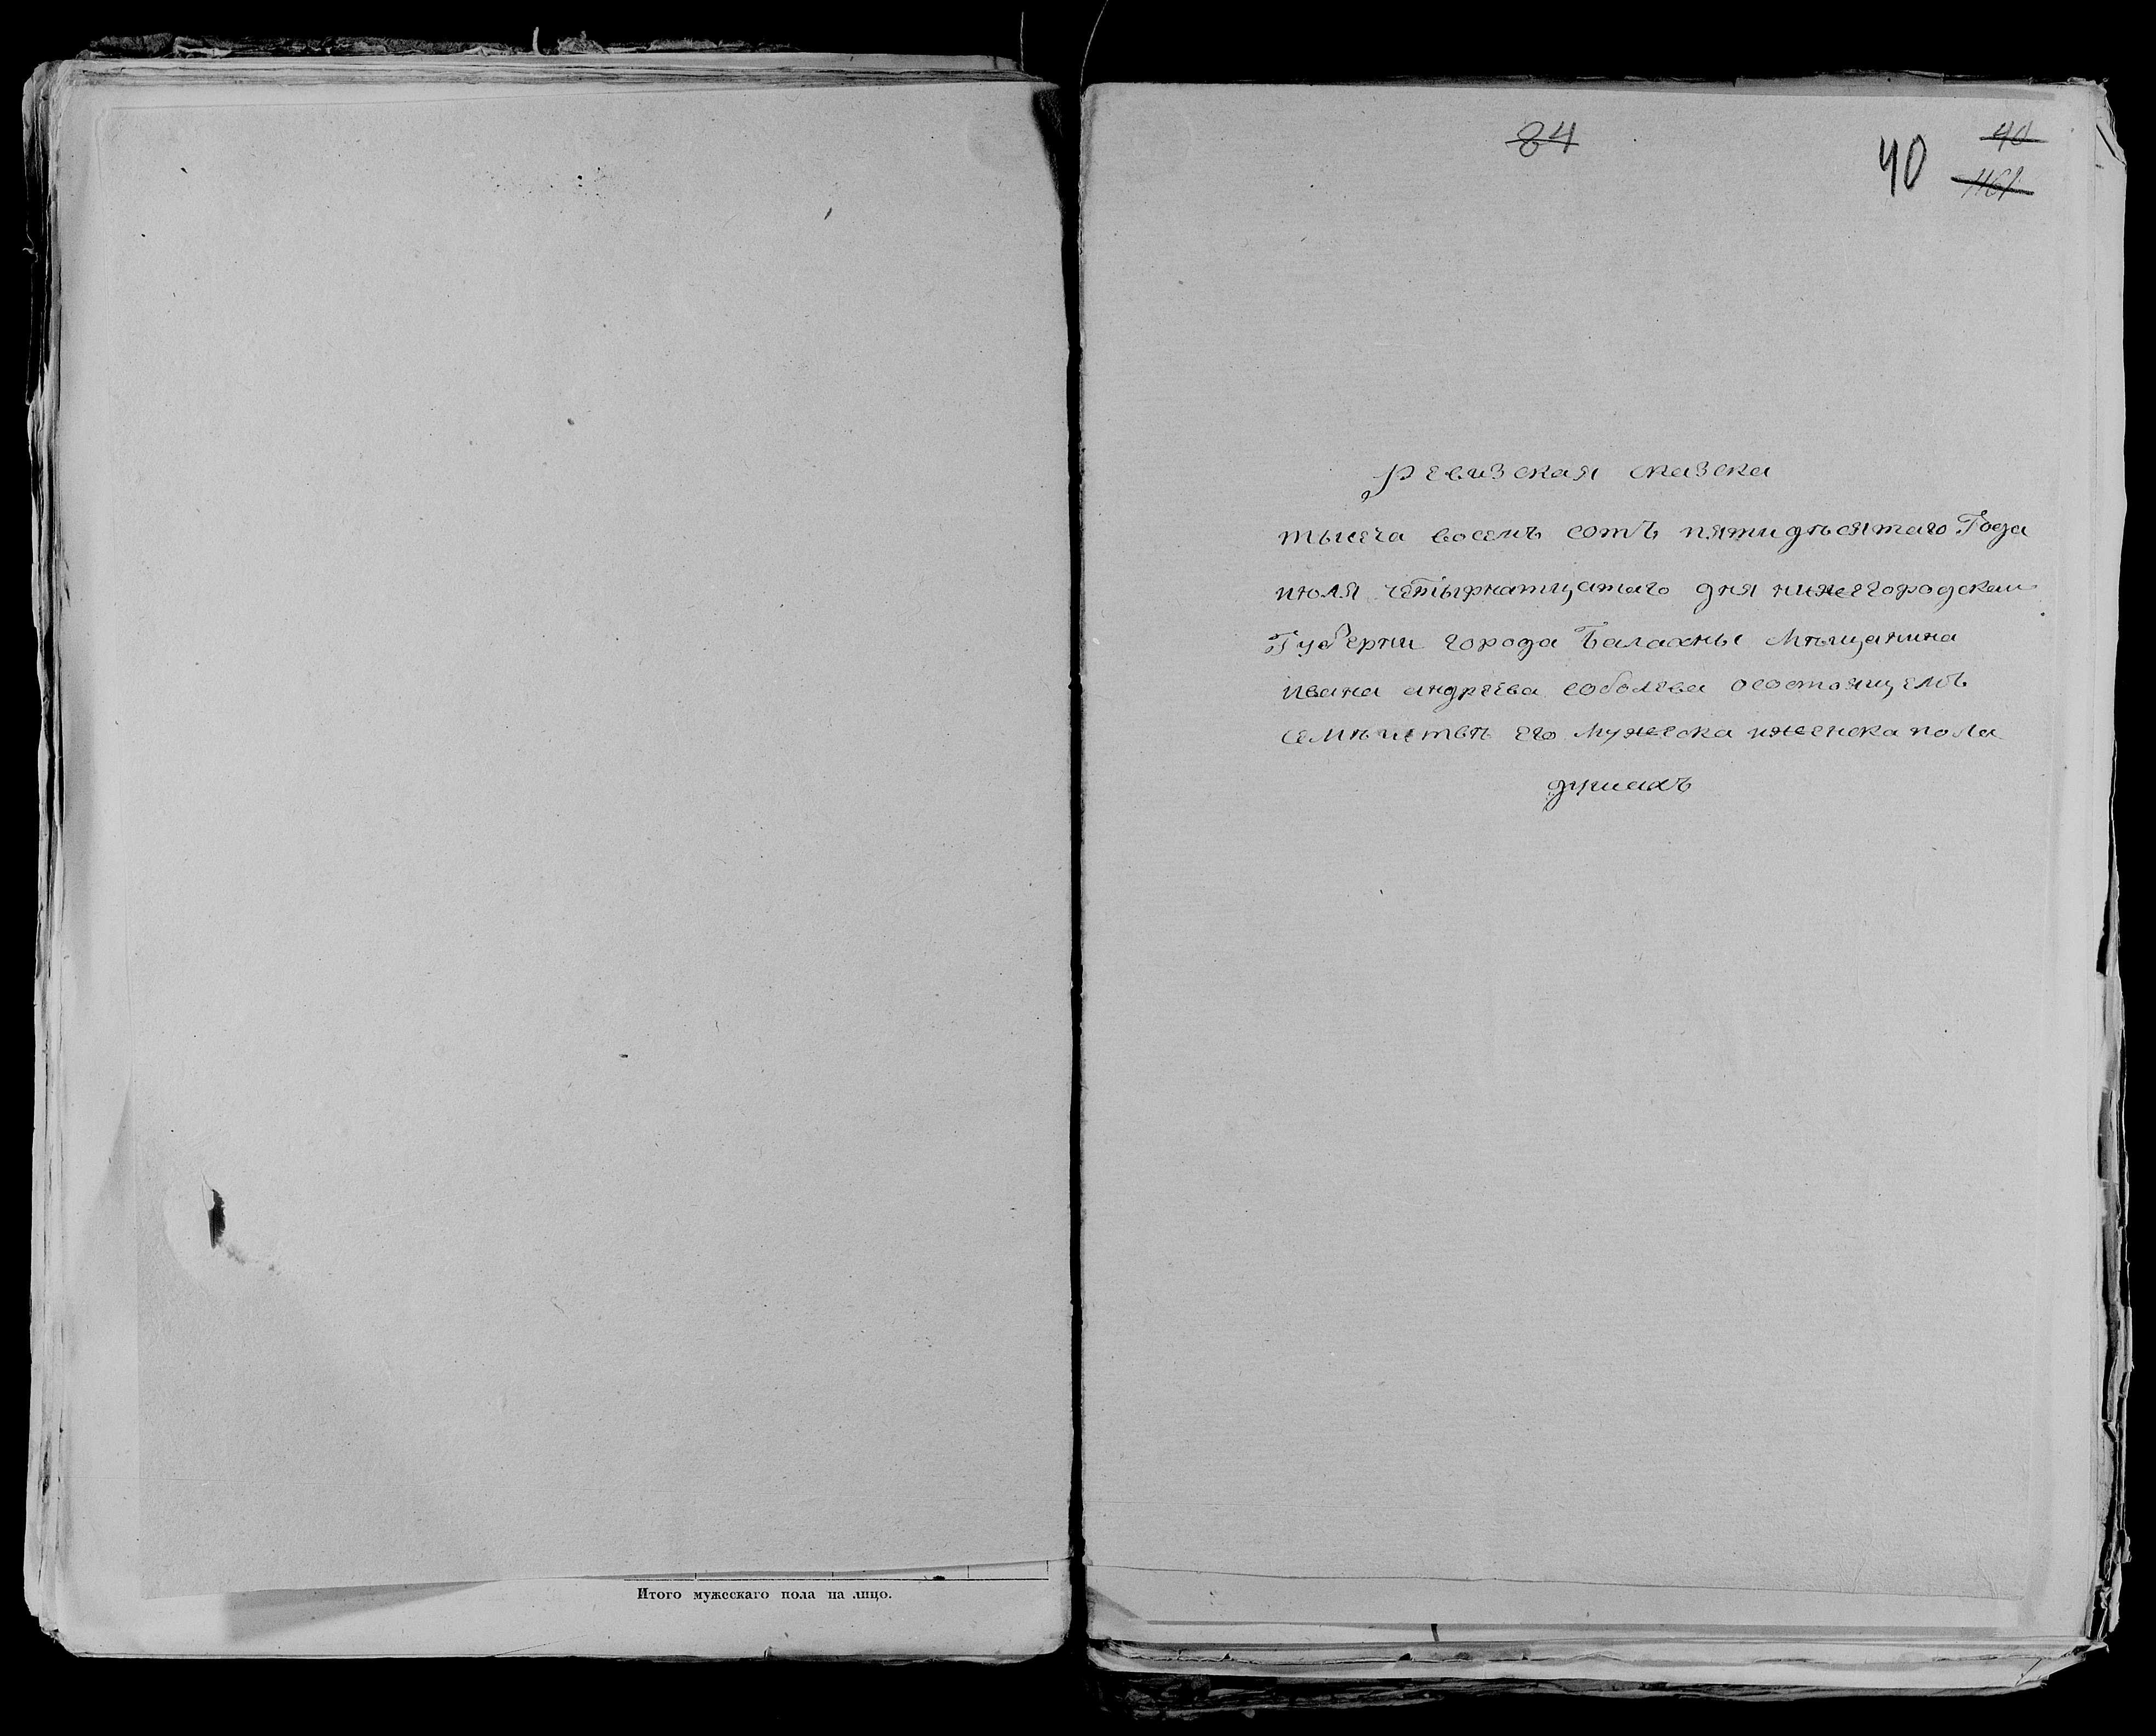 Итого мужескаго пола на лицо.
84
40
40
1161
ревизская сказска
тысеча восемъ сотъ пятидѣсятаго Года
июля четырнатцатаго дня нижегородскаи
Губерни города Балахны Мѣщанина
ивана андреева соболева осостоящемъ
семѣиствѣ его мужеска иженска пола
душахъ